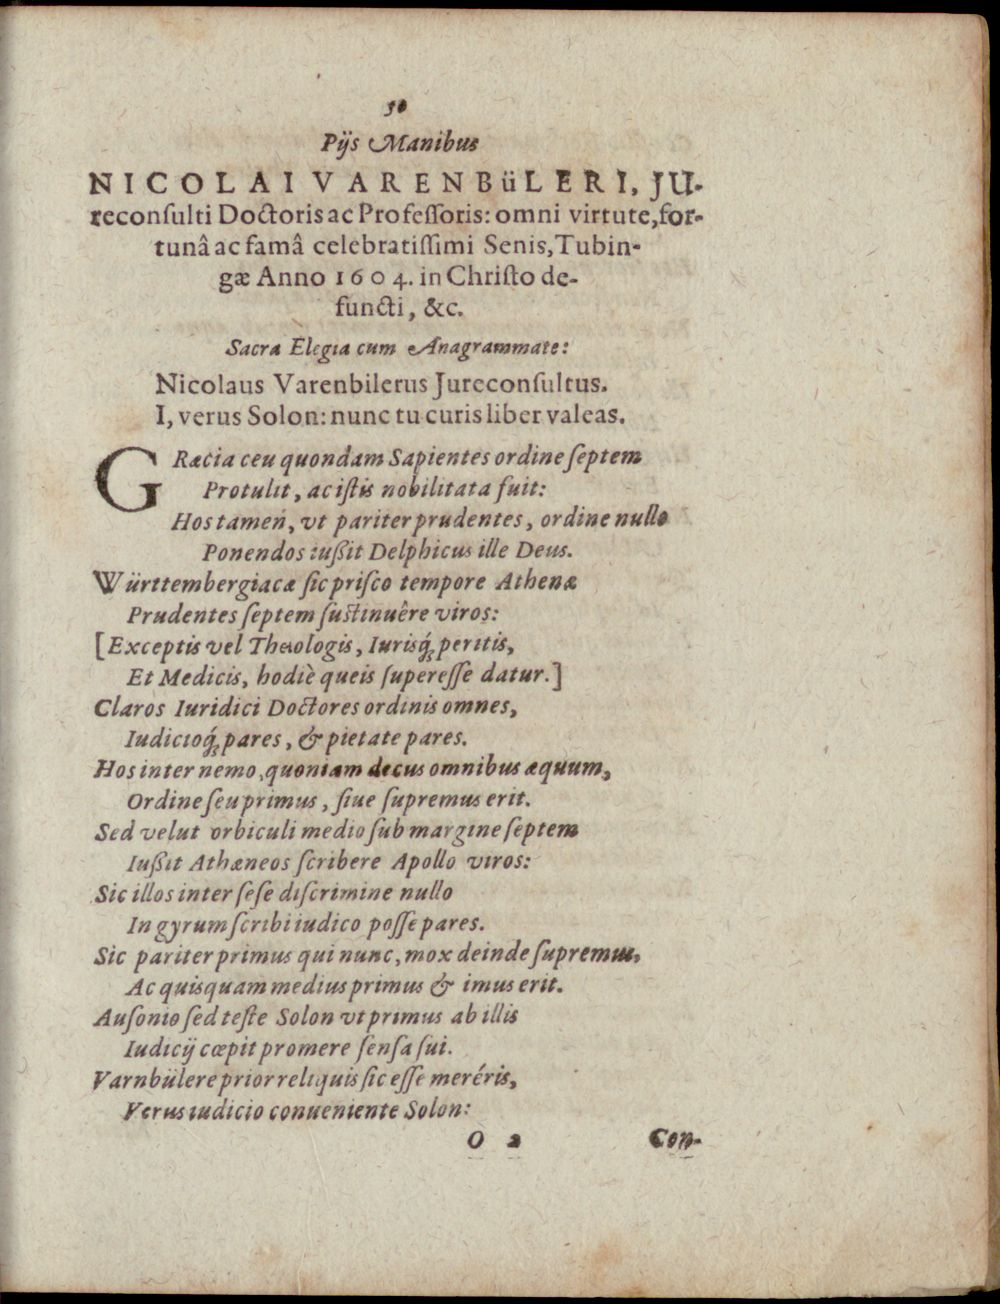 50
Pijs Manibus
NICOLAI VARENBüLERI, JU-
reconſulti Doctoris ac Profeſſoris: omni virtute, for-
tunâ ac famâ celebratiſſimi Senis, Tubin-
gæ Anno 1604. in Chriſto de-
functi, &c.
Sacra Elegia cum Anagrammate:
Nicolaus Varenbilerus Jureconſultus.
I, verus Solon: nunc tu curis liber valeas.
GRæcia ceu quondam Sapientes ordine ſeptem
Protulit, ac iſtis nobilitata fuit:
Hos tamen, vt pariter prudentes, ordine nullo
Ponendos iußit Delphicus ille Deus.
Württembergiacæ ſic priſco tempore Athenæ
Prudentes ſeptem ſuſtinuêre viros:
[Exceptis vel Theologis, Iurisq́; peritis,
Et Medicis, hodiè queis ſupereſſe datur.]
Claros Iuridici Doctores ordinis omnes,
Iudicioq́; pares, & pietate pares.
Hos inter nemo, quoniam decus omnibus æquum,
Ordine ſeu primus, ſiue ſupremus erit.
Sed velut orbiculi medio ſub margine ſeptem
Iußit Athæneos ſcribere Apollo viros:
Sic illos inter ſeſe diſcrimine nullo
In gyrum ſcribi iudico poſſe pares.
Sic pariter primus qui nunc, mox deinde ſupremus,
Ac quisquam medius primus & imus erit.
Auſonio ſed teſte Solon vt primus ab illis
Iudicij cœpit promere ſenſa ſui.
Varnbülere prior reliquis ſic eſſe meréris,
Verus iudicio conueniente Solon:
O 2 Con-